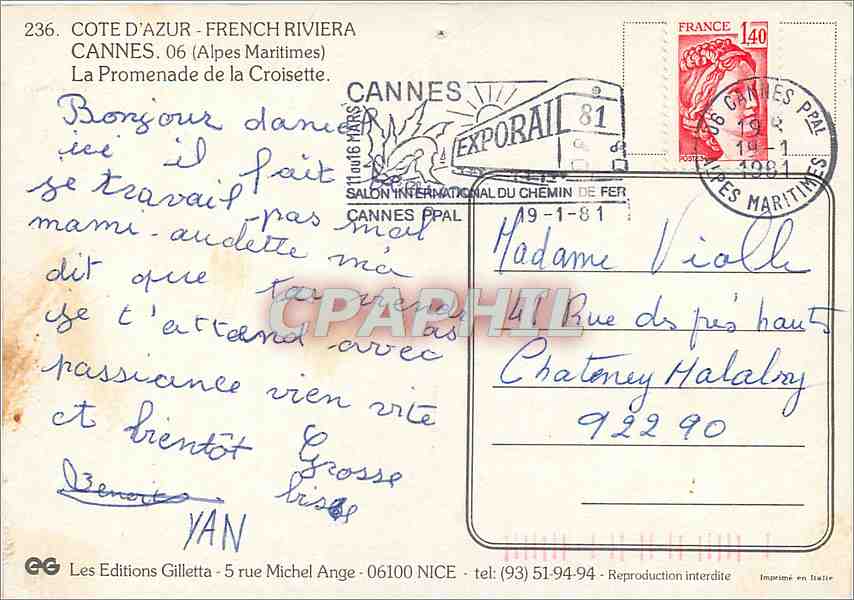 236. COTE D'AZUR - FRENCH RIVIERA
CANNES. 06 (Alpes Maritimes)
La Promenade de la Croisette.
FRANCE
1,40
POSTES
CANNES
11 au 16 MARS
EXPORAIL 81
SALON INTERNATIONAL DU CHEMIN DE FER
CANNES PPAL
19-1-81
06 CANNES PPAL
19 H
19-1
1981
ALPES MARITIMES
Bonjour daniel
ici il fait
je travail pas mal
mami-audette m'a
dit que tu viens
je t'attand avec
passiance vien vite
et bientôt Grosse
bisse
Benoit
YAN
Madame Violle
41 Rue des prés hauts
Chateney Malabry
92290
CPAPHIL
EG Les Editions Gilletta - 5 rue Michel Ange - 06100 NICE - tel: (93) 51-94-94 - Reproduction interdite
Imprimé en Italie